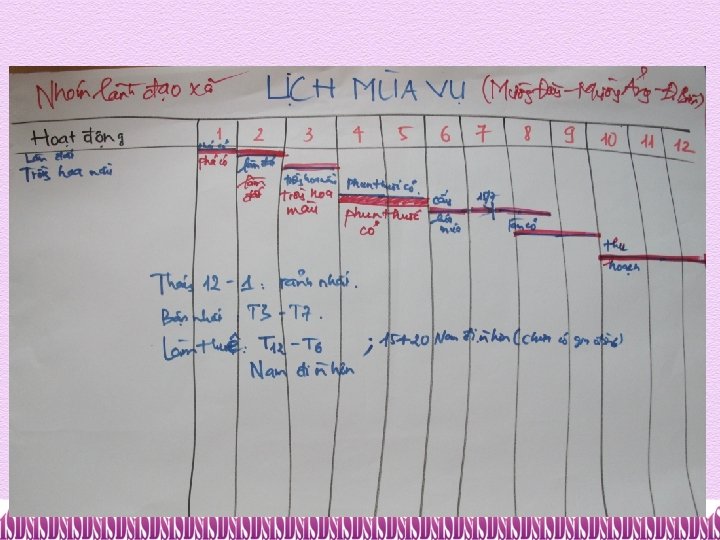 Nhóm lãnh đạo xã LỊCH MÙA VỤ (Mường Đăng - Mường Ảng - Đ.Biên)
Hoạt động 1 2 3 4 5 6 7 8 9 10 11 12
Làm đất
Trồng hoa màu
phá cỏ
phá cỏ làm đất trồng hoa màu phun thuốc cỏ. cấy 15/7 làm cỏ
làm đất Trồng hoa màu phun thuốc cỏ lúa mùa
thu
hoạch
Tháng 12 - 1: rảnh nhất.
Bận nhất T3 - T7.
Làm thuê: T12 - T6 ; 15+20 Nam đi
Nam đi